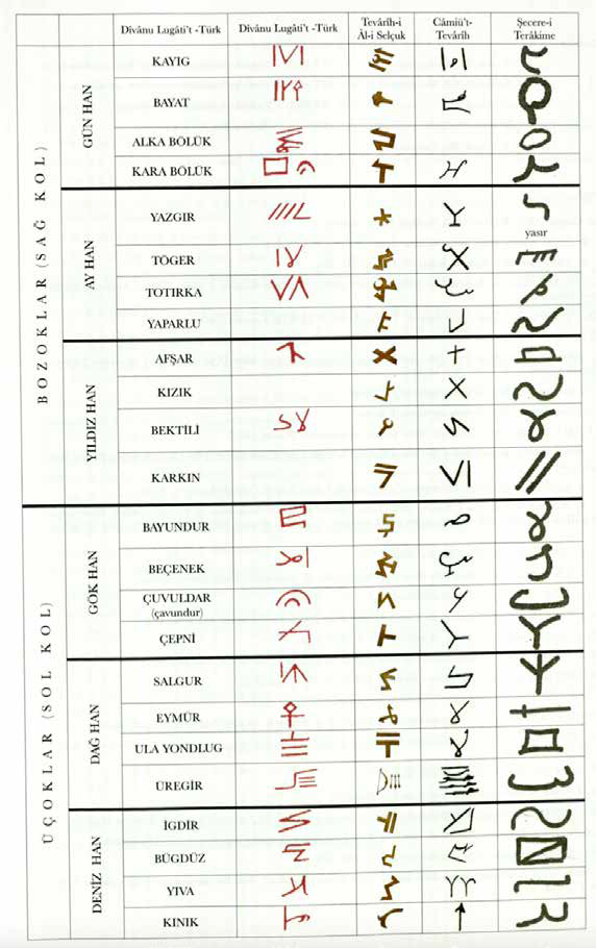 Dîvânu Lugâti't -Türk Dîvânu Lugâti't -Türk Tevârîh-i Âl-i Selçuk Câmiü't-Tevârîh Şecere-i Terâkime
BOZOKLAR (SAĞ KOL)
GÜN HAN
KAYIG
BAYAT
ALKA BÖLÜK
KARA BÖLÜK
AY HAN
YAZGIR
yasır
TÖGER
TOTIRKA
YAPARLU
YILDIZ HAN
AFŞAR
KIZIK
BEKTİLİ
KARKIN
ÜÇOKLAR (SOL KOL)
GÖK HAN
BAYUNDUR
BEÇENEK
ÇUVULDAR
(çavundur)
ÇEPNİ
DAĞ HAN
SALGUR
EYMÜR
ULA YONDLUG
ÜREGİR
DENİZ HAN
İGDİR
BÜGDÜZ
YIVA
KINIK